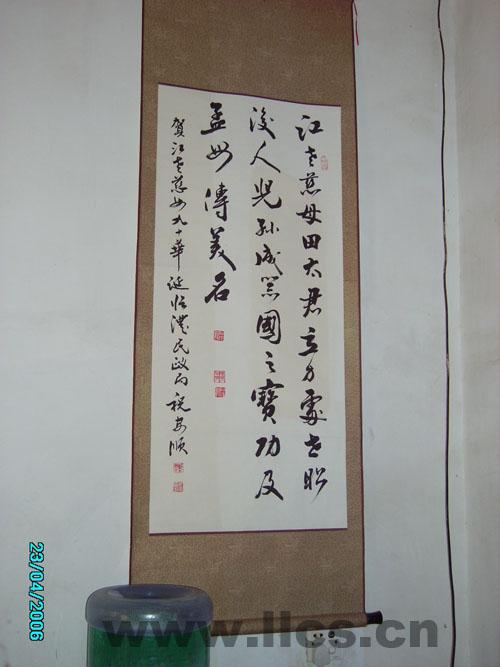 江老慈母田太君立身處世昭
後人兒孫成器國之寶功及
孟母傳美名
賀江老慈母九十華诞临澧民政局祝安順
23/04/2006
www.llcs.cn